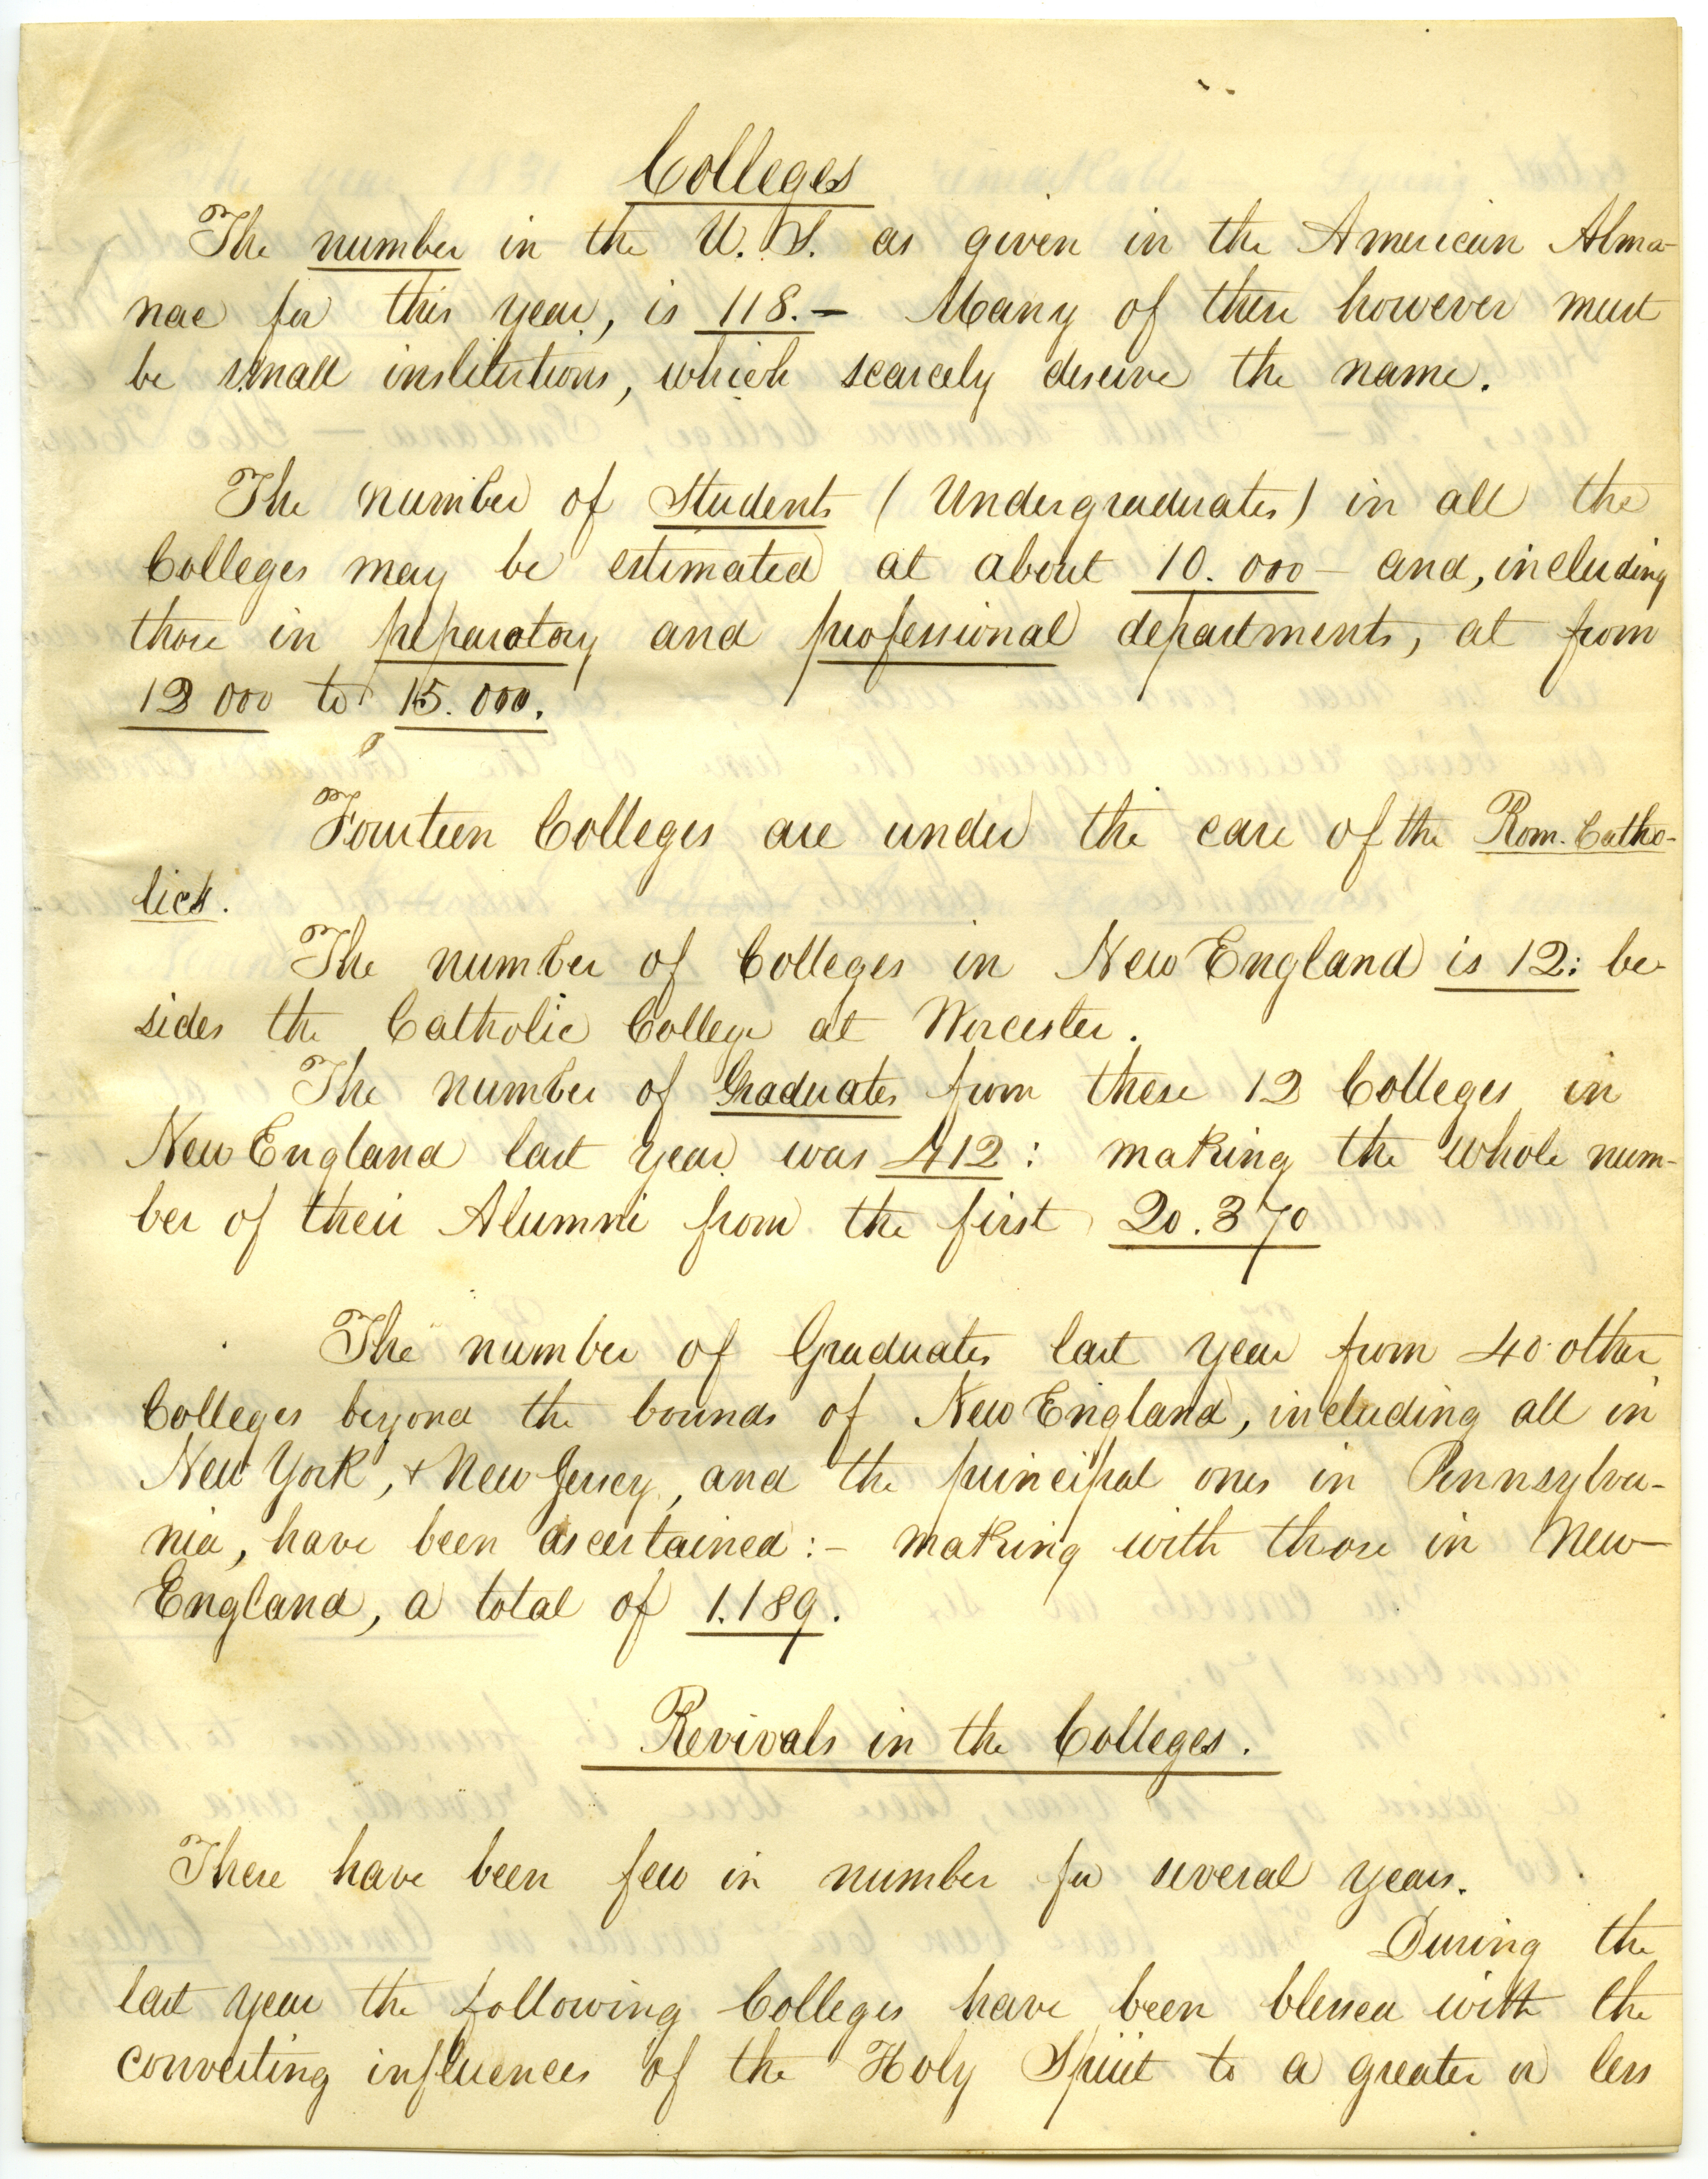 Colleges
The number in the U.S. as given in the American Alma-
nac for this year, is 118. – Many of these however must
be small institutions, which scarcely deserve the name.
The number of Students (Undergraduates) in all the
Colleges may be estimated at about 10.000 – and, including
those in preparatory and professional departments, at from
12 000 to 15.000.
Fourteen Colleges are under the care of the Rom. Catho-
lics.
The number of Colleges in New England is 12: be-
sides the Catholic College at Worcester.
The number of Graduates from these 12 Colleges in
New England last year was 412: making the whole num-
ber of their Alumni from the first 20.370
The number of Graduates last year from 40 other
Colleges beyond the bounds of New England, including all in
New York, + New Jersey, and the principal ones in Pennsylva-
nia, have been ascertained: – making with those in New-
England, a total of 1.189.
Revivals in the Colleges.
There have been few in number for several years.
During the
last year the following Colleges have been blessed with the
converting influences of the Holy Spirit to a greater or less